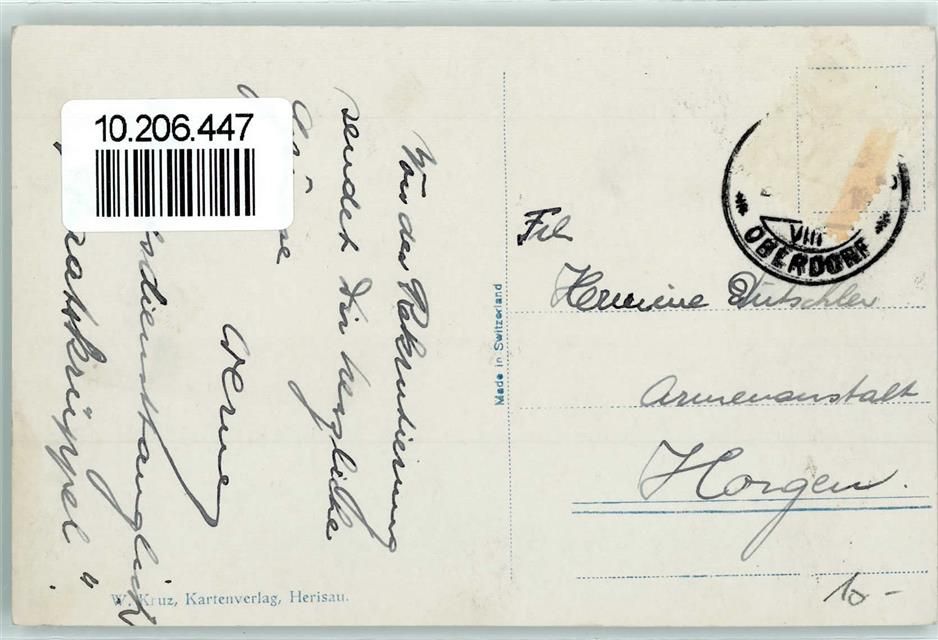 10.206.447
Von der Rekrutierung
sendet Dir herzliche
Grüsse
Werner
dienstauglich
krüppel"
Made in Switzerland
W. Kruz, Kartenverlag, Herisau.
VIII
* OBERDORF *
Frl
Hermine Dütschler
Armenanstalt
Horgen.
10-